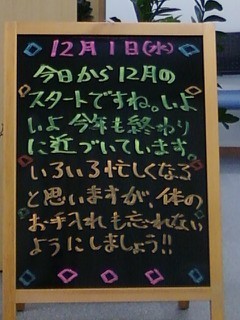 12月1日(水)
今日から12月の
スタートですね。いよ
いよ今年も終わり
に近づいています。
いろいろ忙しくなる
と思いますが、体の
お手入れも忘れない
ようにしましょう!!